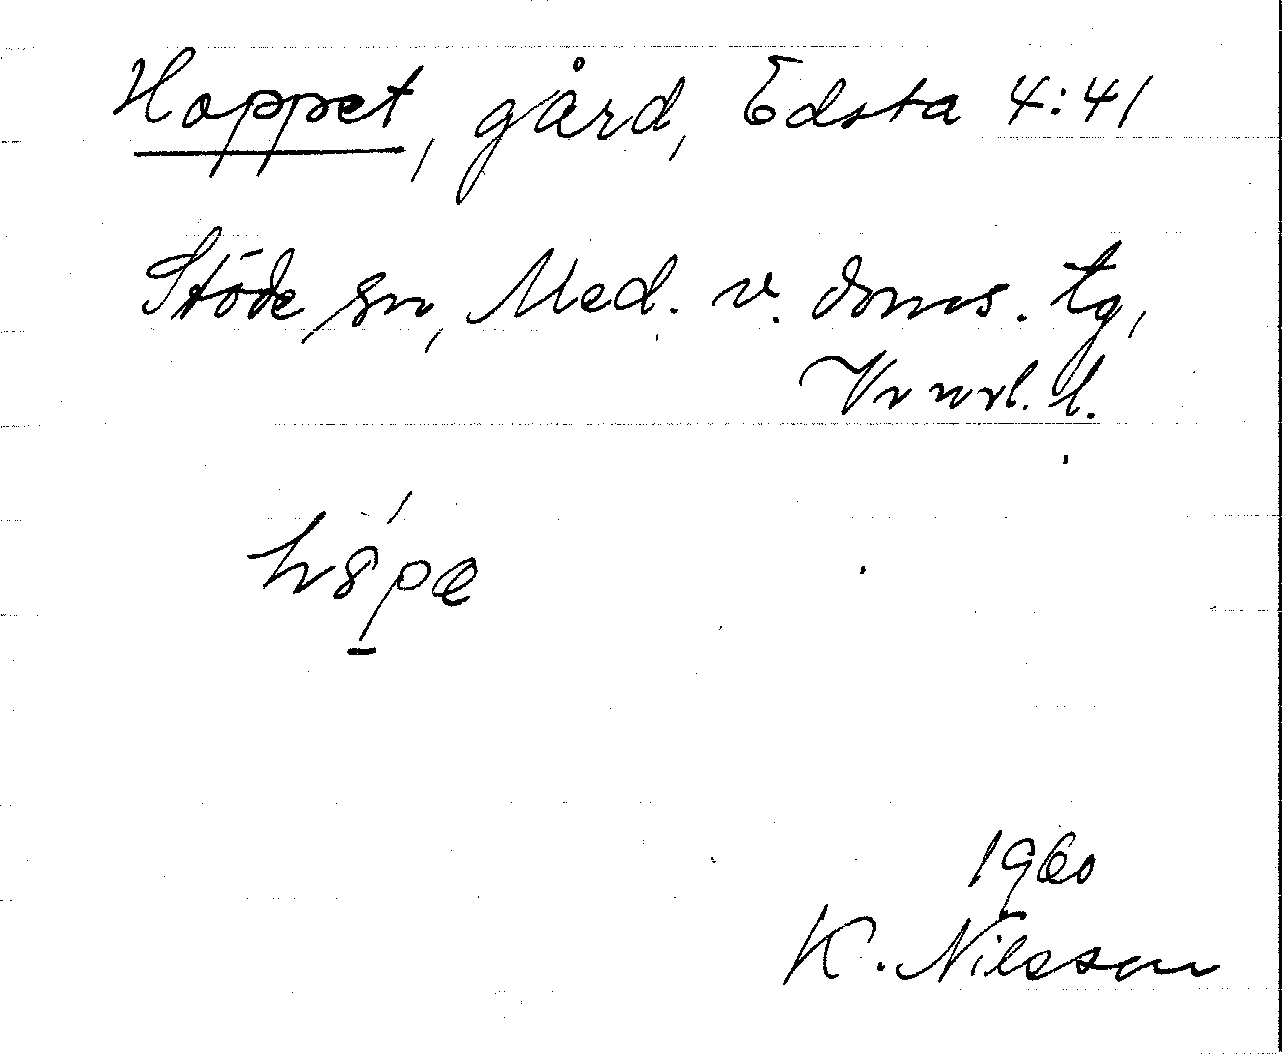 Hoppet, gård, Edsta 4:41
Stöde sn, Med. v. doms. tg,
Vnorl. l.
1960
K. Nilsson